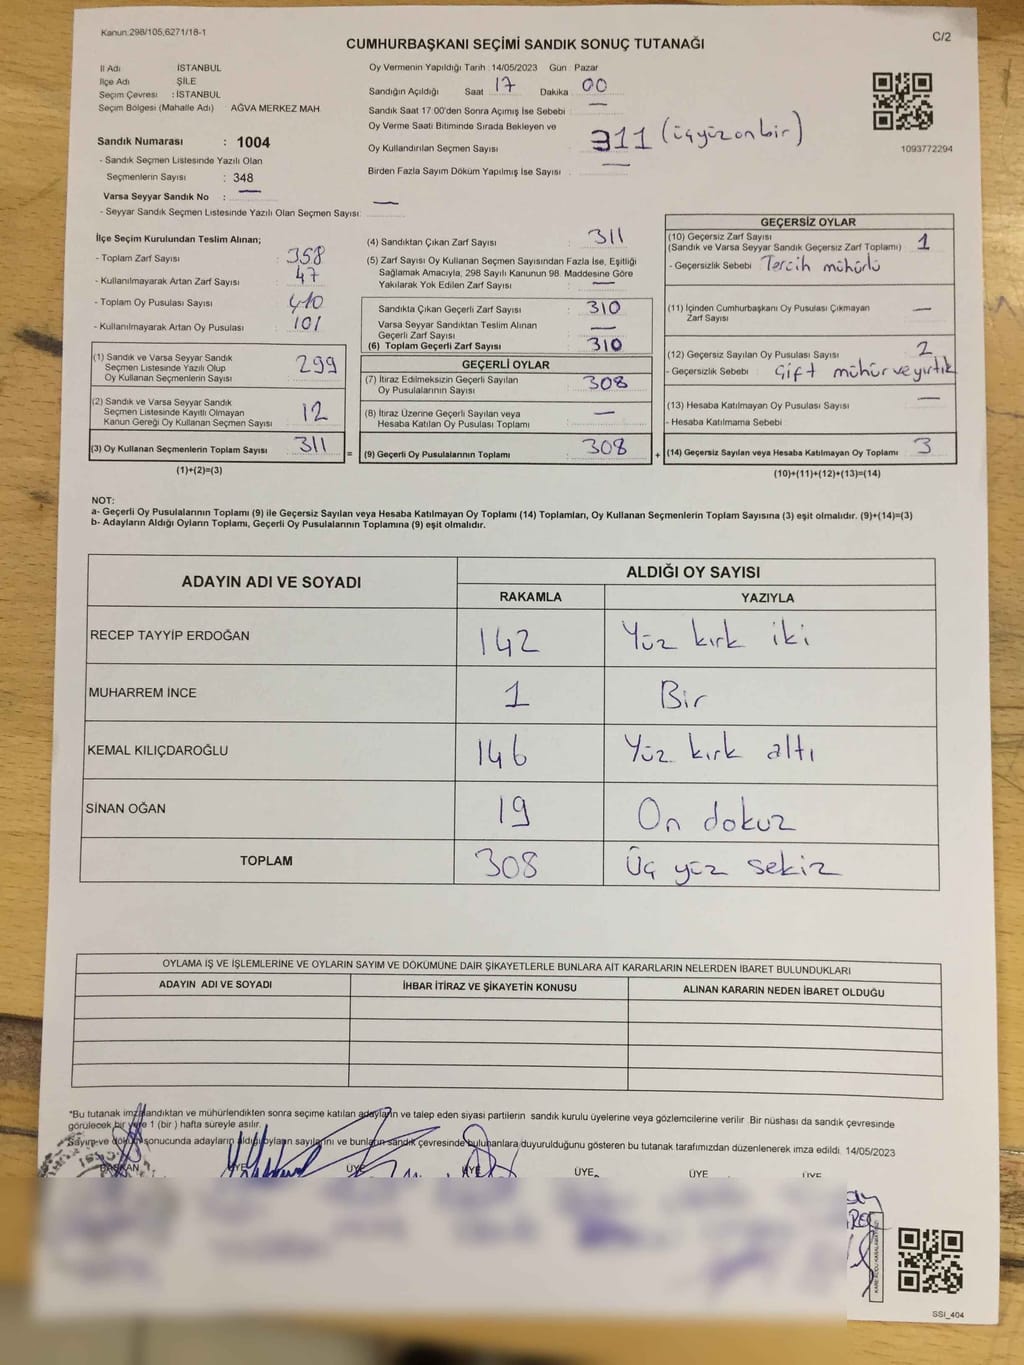 Kanun.298/105,6271/18-1
C/2
CUMHURBAŞKANI SEÇİMİ SANDIK SONUÇ TUTANAĞI
İl Adı İSTANBUL
İlçe Adı ŞİLE
Seçim Çevresi : İSTANBUL
Seçim Bölgesi (Mahalle Adı) AĞVA MERKEZ MAH
Sandık Numarası : 1004
- Sandık Seçmen Listesinde Yazılı Olan
Seçmenlerin Sayısı : 348
Varsa Seyyar Sandık No : —
- Seyyar Sandık Seçmen Listesinde Yazılı Olan Seçmen Sayısı: —
Oy Vermenin Yapıldığı Tarih : 14/05/2023 Gün : Pazar
Sandığın Açıldığı Saat 17 Dakika 00
Sandık Saat 17:00'den Sonra Açımış İse Sebebi : —
Oy Verme Saati Bitiminde Sırada Bekleyen ve
Oy Kullandırılan Seçmen Sayısı : 311 (üçyüzonbir)
Birden Fazla Sayım Döküm Yapılmış İse Sayısı : —
1093772294
İlçe Seçim Kurulundan Teslim Alınan;
- Toplam Zarf Sayısı : 358
- Kullanılmayarak Artan Zarf Sayısı : 47
- Toplam Oy Pusulası Sayısı : 410
- Kullanılmayarak Artan Oy Pusulası : 101
(1) Sandık ve Varsa Seyyar Sandık
Seçmen Listesinde Yazılı Olup
Oy Kullanan Seçmenlerin Sayısı 299
(2) Sandık ve Varsa Seyyar Sandık
Seçmen Listesinde Kayıtlı Olmayan
Kanun Gereği Oy Kullanan Seçmen Sayısı 12
(3) Oy Kullanan Seçmenlerin Toplam Sayısı 311
(1)+(2)=(3)
=
(4) Sandıktan Çıkan Zarf Sayısı : 311
(5) Zarf Sayısı Oy Kullanan Seçmen Sayısından Fazla İse, Eşitliği
Sağlamak Amacıyla, 298 Sayılı Kanunun 98. Maddesine Göre
Yakılarak Yok Edilen Zarf Sayısı : —
Sandıkta Çıkan Geçerli Zarf Sayısı : 310
Varsa Seyyar Sandıktan Teslim Alınan
Geçerli Zarf Sayısı : —
(6) Toplam Geçerli Zarf Sayısı : 310
GEÇERLİ OYLAR
(7) İtiraz Edilmeksizin Geçerli Sayılan
Oy Pusulalarının Sayısı : 308
(8) İtiraz Üzerine Geçerli Sayılan veya
Hesaba Katılan Oy Pusulası Toplamı : —
(9) Geçerli Oy Pusulalarının Toplamı : 308
+
GEÇERSİZ OYLAR
(10) Geçersiz Zarf Sayısı
(Sandık ve Varsa Seyyar Sandık Geçersiz Zarf Toplamı) : 1
- Geçersizlik Sebebi : Tercih mühürlü
(11) İçinden Cumhurbaşkanı Oy Pusulası Çıkmayan
Zarf Sayısı —
(12) Geçersiz Sayılan Oy Pusulası Sayısı : 2
- Geçersizlik Sebebi : Çift mühür ve yırtık
(13) Hesaba Katılmayan Oy Pusulası Sayısı : —
- Hesaba Katılmama Sebebi :
(14) Geçersiz Sayılan veya Hesaba Katılmayan Oy Toplamı 3
(10)+(11)+(12)+(13)=(14)
NOT:
a- Geçerli Oy Pusulalarının Toplamı (9) ile Geçersiz Sayılan veya Hesaba Katılmayan Oy Toplamı (14) Toplamları, Oy Kullanan Seçmenlerin Toplam Sayısına (3) eşit olmalıdır. (9)+(14)=(3)
b- Adayların Aldığı Oyların Toplamı, Geçerli Oy Pusulalarının Toplamına (9) eşit olmalıdır.
ADAYIN ADI VE SOYADI
ALDIĞI OY SAYISI
RAKAMLA YAZIYLA
RECEP TAYYİP ERDOĞAN 142 Yüz kırk iki
MUHARREM İNCE 1 Bir
KEMAL KILIÇDAROĞLU 146 Yüz kırk altı
SİNAN OĞAN 19 On dokuz
TOPLAM 308 Üç yüz sekiz
OYLAMA İŞ VE İŞLEMLERİNE VE OYLARIN SAYIM VE DÖKÜMÜNE DAİR ŞİKAYETLERLE BUNLARA AİT KARARLARIN NELERDEN İBARET BULUNDUKLARI
ADAYIN ADI VE SOYADI İHBAR İTİRAZ VE ŞİKAYETİN KONUSU ALINAN KARARIN NEDEN İBARET OLDUĞU
*Bu tutanak imzalandıktan ve mühürlendikten sonra seçime katılan adayların ve talep eden siyasi partilerin sandık kurulu üyelerine veya gözlemcilerine verilir. Bir nüshası da sandık çevresinde
görülecek bir yere 1 (bir) hafta süreyle asılır.
Sayım ve döküm sonucunda adayların aldığı oyların sayılarını ve bunların sandık çevresinde bulunanlara duyurulduğunu gösteren bu tutanak tarafımızdan düzenlenerek imza edildi. 14/05/2023
BAŞKAN ÜYE ÜYE ÜYE ÜYE ÜYE ÜYE
SSI_404